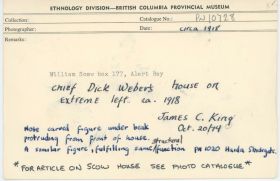 ETHNOLOGY DIVISION—BRITISH COLUMBIA PROVINCIAL MUSEUM
Collection: Catalogue No.: PN 10728
Photographer: Date: circa 1918
Remarks:
William Scow box 177, Alert Bay
chief Dick Webers house on
extreme left. ca. 1918
James C. King
Oct. 20/74
Note carved figure under beak
protruding from front of house.
A similar figure, fulfilling same structural function PN 1020 Haida, Skidegate.
*FOR ARTICLE ON SCOW HOUSE SEE PHOTO CATALOGUE*